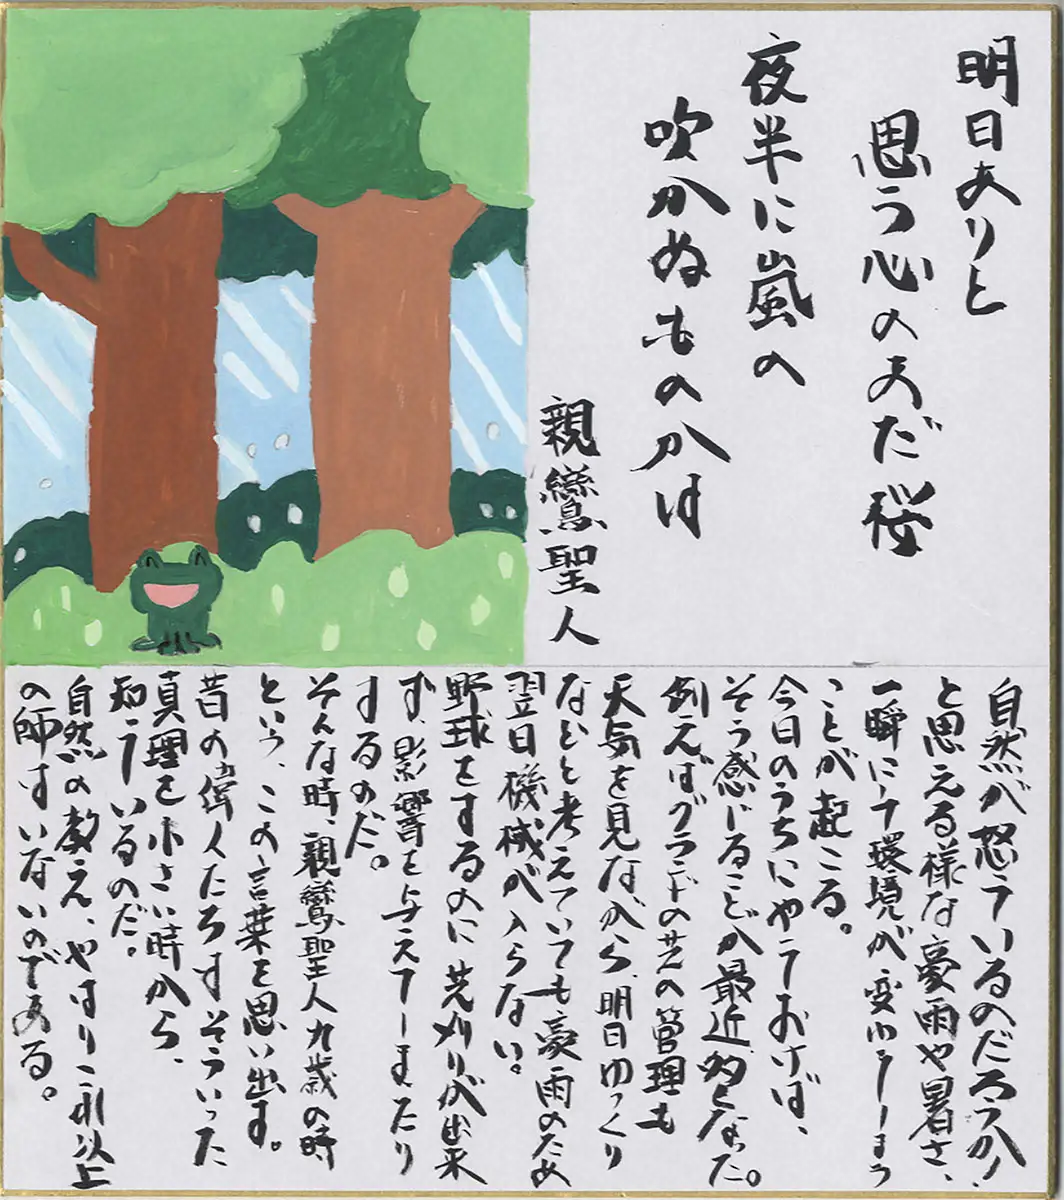 明日ありと
思う心のあだ桜
夜半に嵐の
吹かぬものかは
親鸞聖人
自然が怒っているのだろうか、
と思える様な豪雨や暑さ、
一瞬にして環境が変わってしまう
ことが起こる。
今日のうちにやっておけば、
そう感じることが最近多くなった。
例えばグランドの芝の管理も
天気を見ながら、明日ゆっくり
などと考えていても豪雨のため
翌日機械が入らない。
野球をするのに芝刈りが出来
ず、影響を与えてしまったり
するのだ。
そんな時、親鸞聖人九歳の時
という、この言葉を思い出す。
昔の偉人たちはそういった
真理を小さい時から、
知っているのだ。
自然の教え、やはりこれ以上
の師はいないのである。